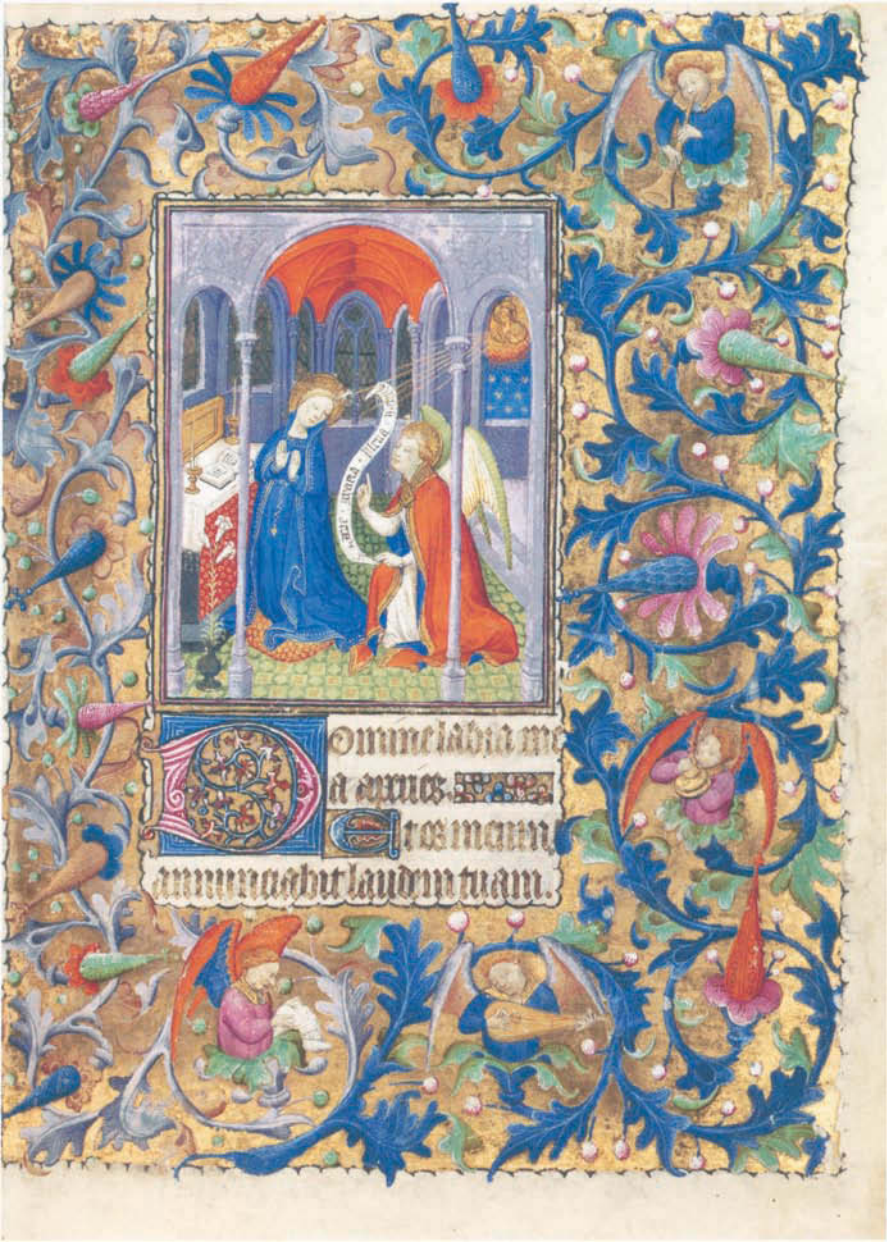 aue maria
Domine labia me
a aperies
Et os meum
annunciabit laudem tuam.